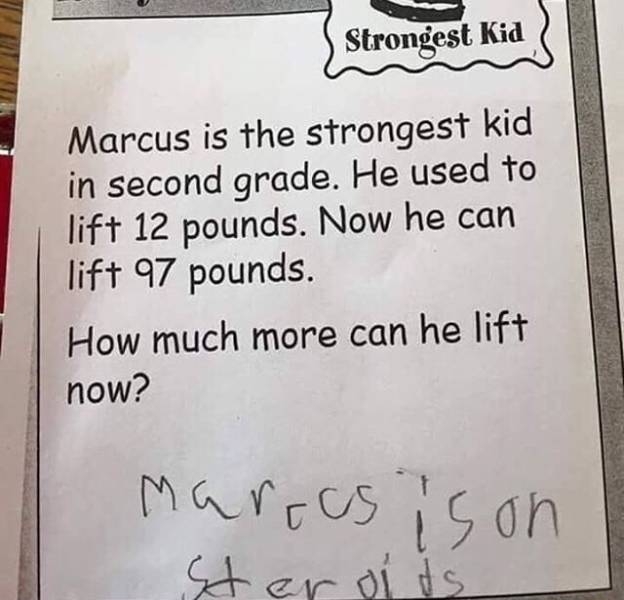 Strongest Kid
Marcus is the strongest kid
in second grade. He used to
lift 12 pounds. Now he can
lift 97 pounds.
How much more can he lift
now?
Marccs is on
Steroids